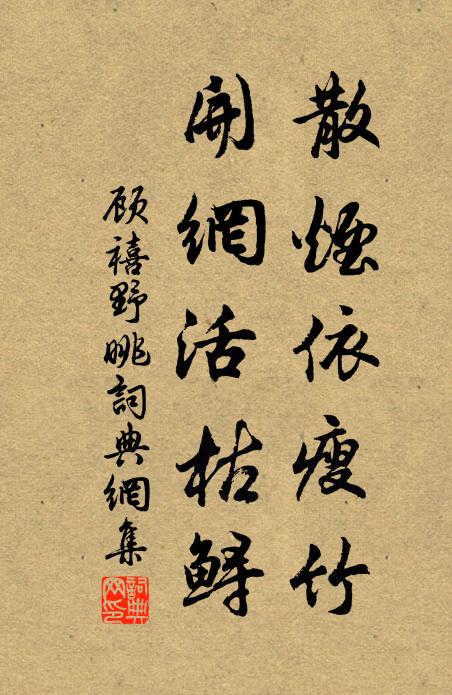 散煙依瘦竹
開網活枯鱘
顾禧野眺詞典網集
詞典网印